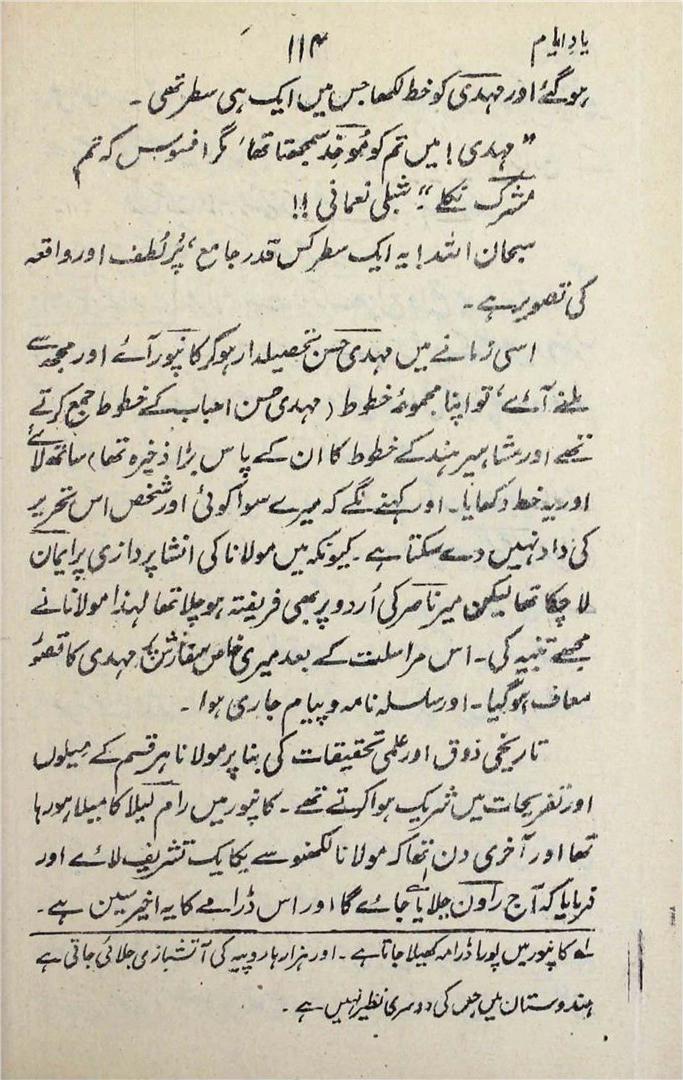 یادِ ایام
۱۱۴
ہو گئے اور مہدی کو خط لکھا جس میں ایک ہی سطر تھی۔
”مہدی! میں تم کو مُوحّد سمجھتا تھا، مگر افسوس کہ تم
مشرک نکلے“۔ شبلی نعمانی !!
سبحان اللہ! یہ ایک سطر کس قدر جامع، پُر لُطف اور واقعہ
کی تصویر ہے۔
اسی زمانے میں مہدی حسن تحصیلدار ہو کر کانپور آئے اور مجھ سے
ملنے آئے، تو اپنا مجموعۂ خطوط (مہدی حسن احباب کے خطوط جمع کرتے
تھے اور مشاہیر ہند کے خطوط کا ان کے پاس بڑا ذخیرہ تھا) ساتھ لائے
اور یہ خط دکھایا۔ اور کہنے لگے کہ میرے سوا کوئی اور شخص اس تحریر
کی داد نہیں دے سکتا ہے۔ کیونکہ میں مولانا کی انشا پردازی پر ایمان
لا چکا تھا لیکن میر ناصر کی اُردو پر بھی فریفتہ ہو چلا تھا لہذا مولانا نے
مجھے تنبیہ کی۔ اس مراسلت کے بعد میری خاص سفارش پر مہدی کا قصور
معاف ہو گیا۔ اور سلسلہ نامہ و پیام جاری ہوا۔
تاریخی ذوق اور علمی تحقیقات کی بنا پر مولانا ہر قسم کے میلوں
اور تفریحات میں شریک ہوا کرتے تھے۔ کانپور میں رام لیلا کا میلا ہو رہا
تھا اور آخری دن تھا کہ مولانا لکھنؤ سے یکایک تشریف لائے اور
فرمایا کہ آج راون جلایا جائے گا اور اس ڈرامے کا یہ اخیر سین ہے۔
لہ کانپور میں پورا ڈرامہ کھیلا جاتا ہے۔ اور ہزارہا روپیہ کی آتشبازی جلائی جاتی ہے
ہندوستان میں جس کی دوسری نظیر نہیں ہے۔